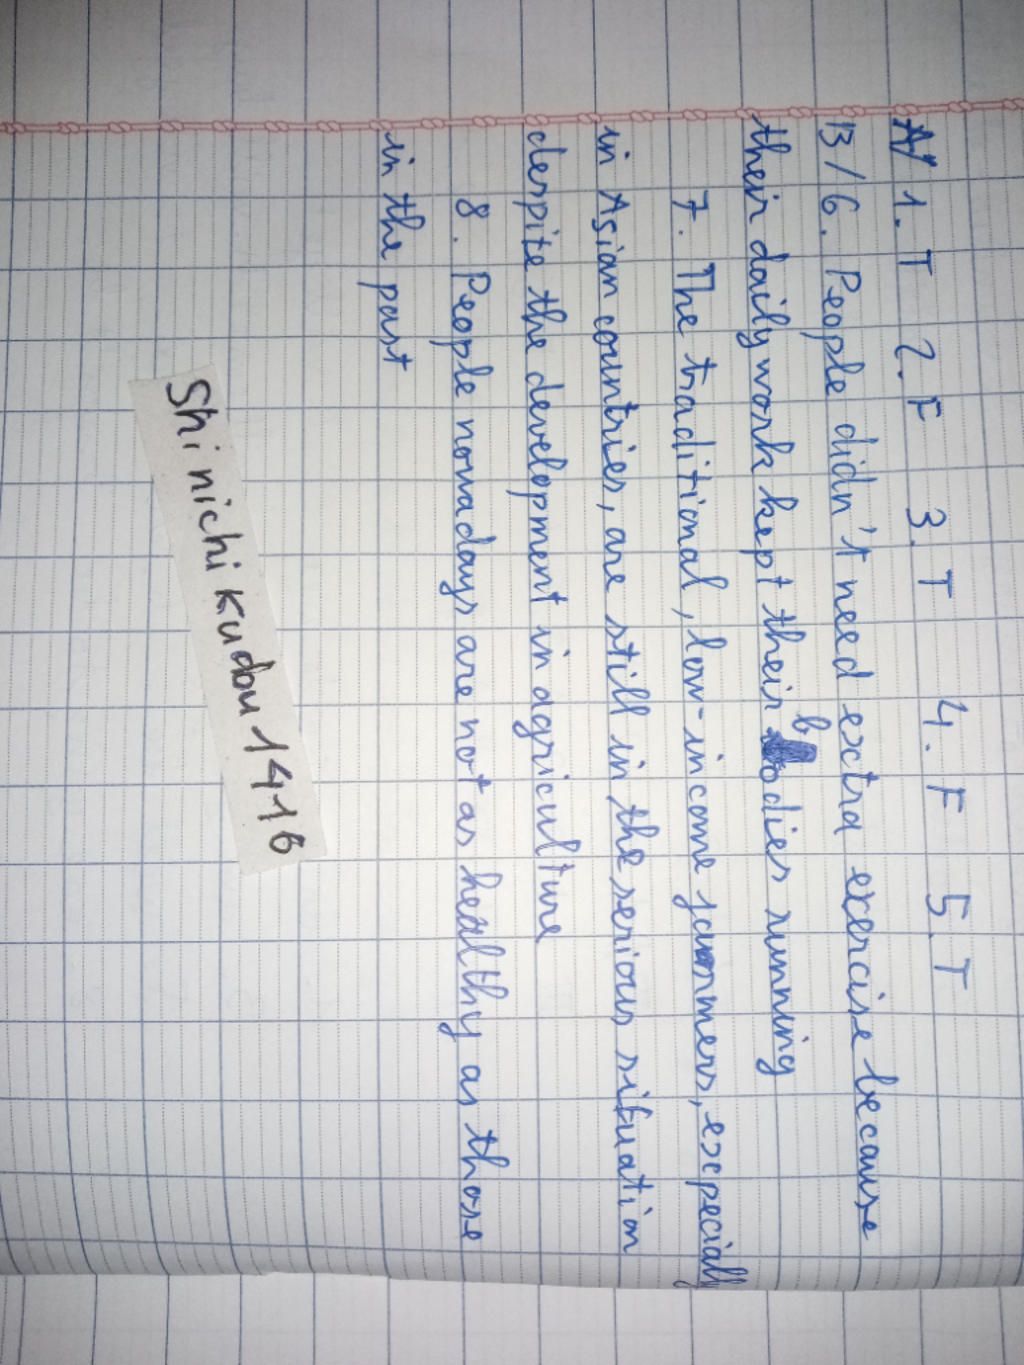 A/ 1. T 2. F 3. T 4. F 5. T
B/ 6. People didn't need extra exercise because
their daily work kept their bodies running
7. The traditional, low-income farmers, especially
in Asian countries, are still in the serious situation
despite the development in agriculture
8. People nowadays are not as healthy as those
in the past
Shinichikudou1416